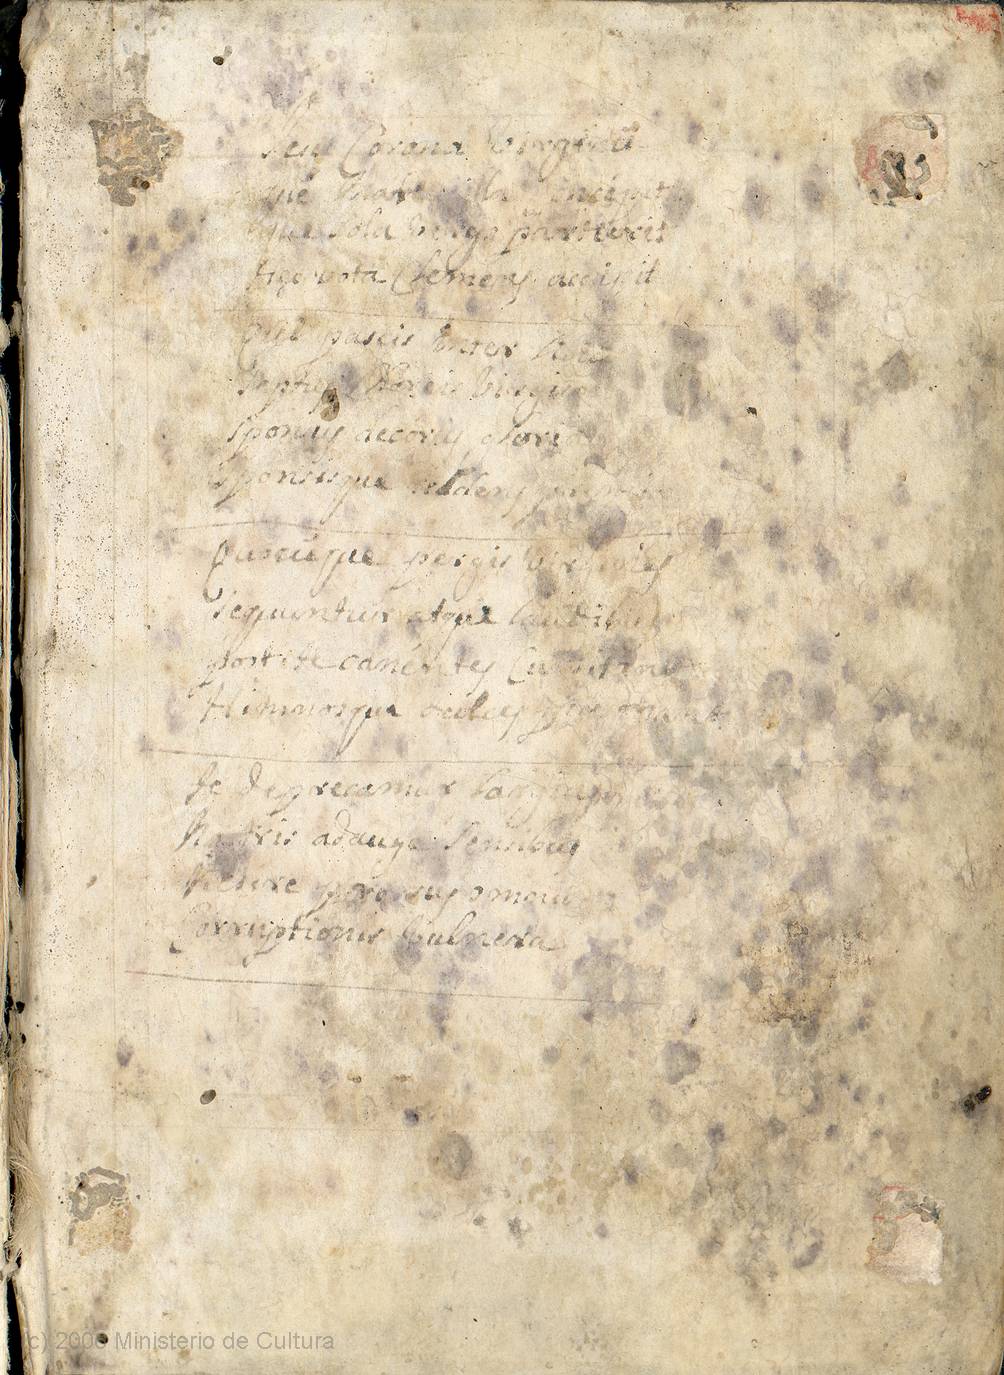 Jesu Corona Virginũ
quẽ Mater illa concepit
que sola virgo parturit
hęc vota Clemens accipit
Qui pascis inter
septus Choreis Virginũ
sponsus decorus gloria
sponsisque reddens premia
Quocũque pergis virgines
sequuntur atque laudibus
post te canẽntes
Himnosque dulces personant
te deprecamur largius
Nostris adauge sensibus
Nescire prorsus omnia
Corruptionis Vulnera
(c) 2006 Ministerio de Cultura